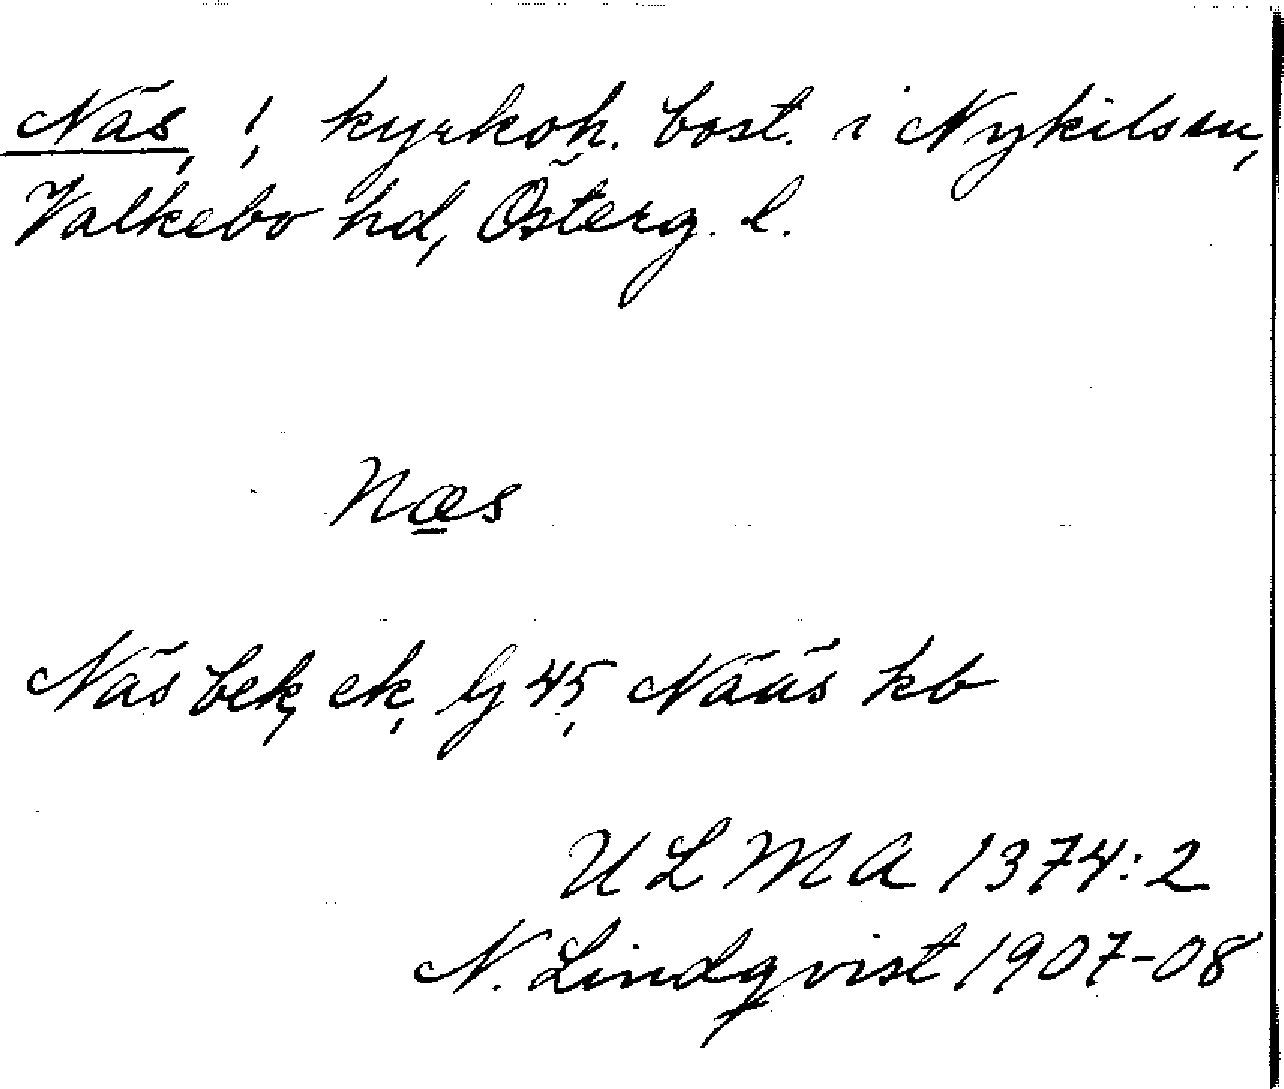 Näs, !, kyrkoh. bost. i Nykils sn,
Valkebo hd, Österg. l.
Næs
Näs bek, ek, lj 45, Nääs kb
ULMA 1374:2
N. Lindqvist 1907-08